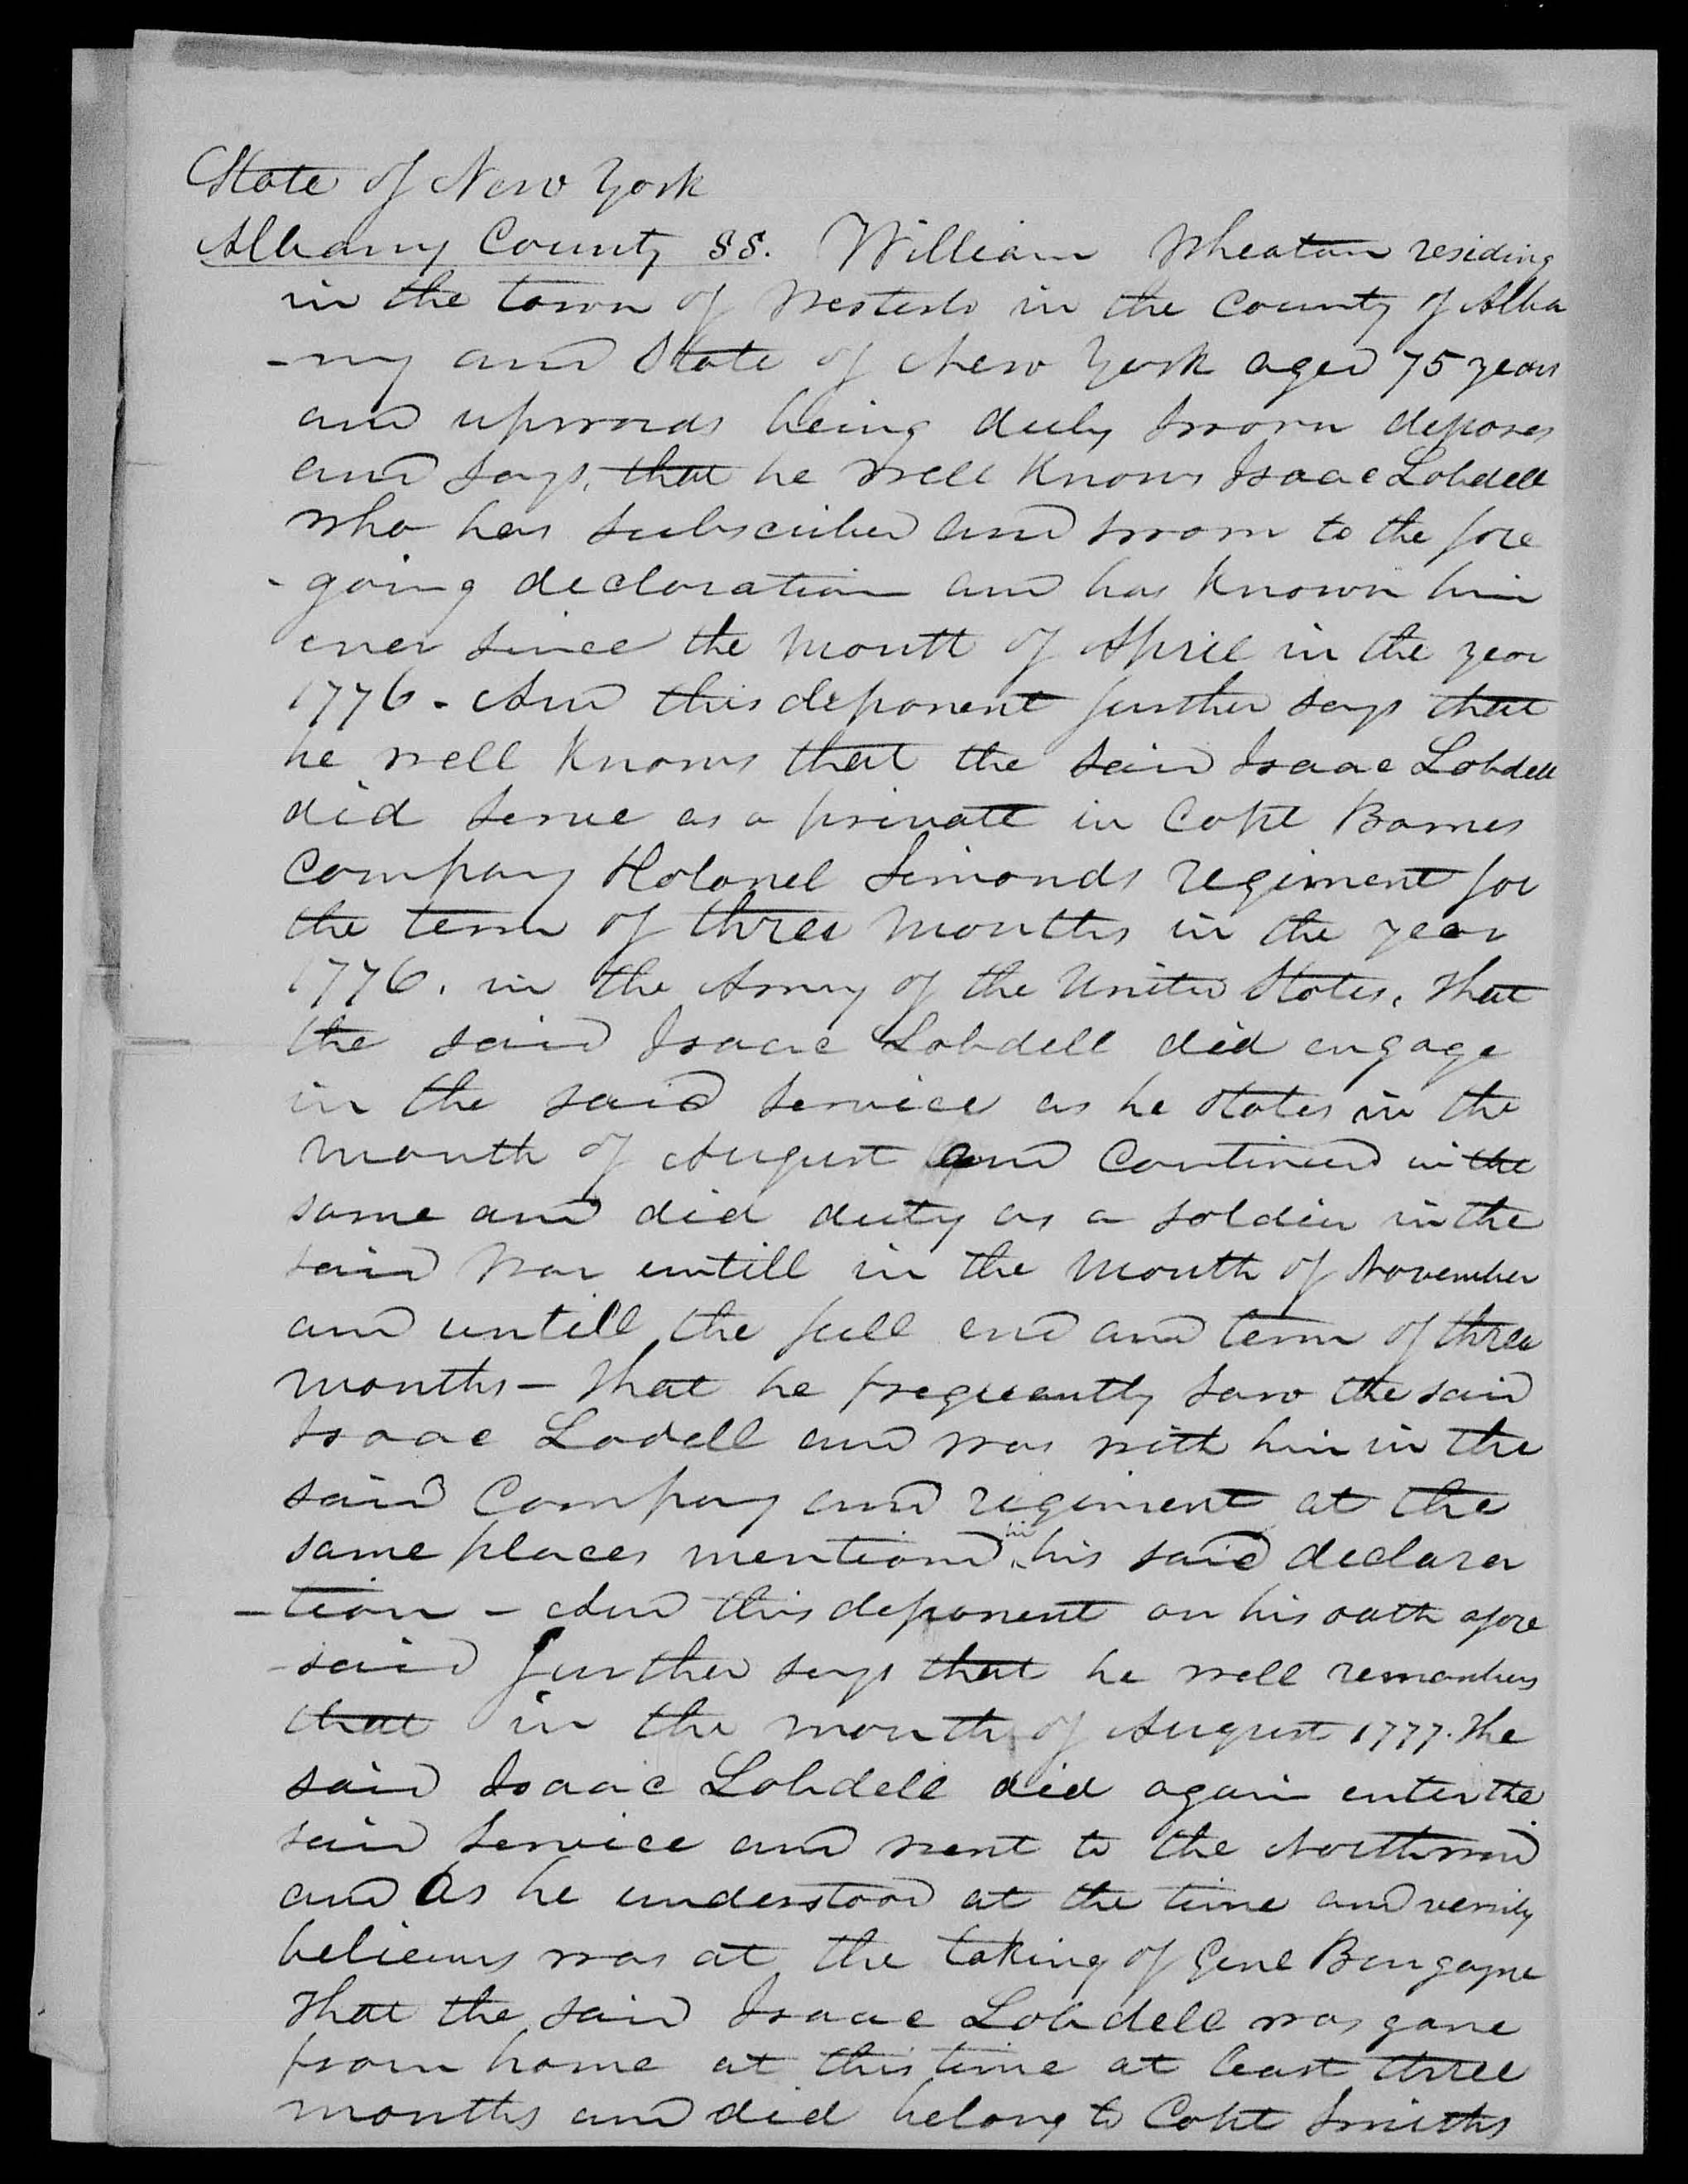 State of New York
Albany County SS. William Wheaton residing
in the town of Westerlo in the County of Alba
-ny and State of New York aged 75 years
and upwards being duly sworn deposes
and says, that he well knows Isaac Lobdell
who has subscribed and sworn to the fore
-going declaration and has known him
ever since the month of April in the year
1776 - And this deponent further says that
he well knows that the said Isaac Lobdell
did serve as a private in Capt Barnes
Company Kolonel Simonds regiment for
the term of three months in the year
1776. in the Army of the United States, that
the said Isaac Lobdell did engage
in the said service as he states in the
month of August and continued in the
same and did duty as a soldier in the
said War untill in the month of November
and untill the full end and term of three
months - that he frequently saw the said
Isaac Lodell and was with him in the
said Company and regiment at the
same places mentiond in his said declara
-tion - And this deponent on his oath afore
-said further says that he well remembers
that in the month of August 1777. the
said Isaac Lobdell did again enter the
said service and went to the Northward
and as he understood at the time and verily
believes was at the taking of Genl Burgoyne
That the said Isaac Lobdell was gone
from home at this time at least three
months and did belong to Capt Smiths